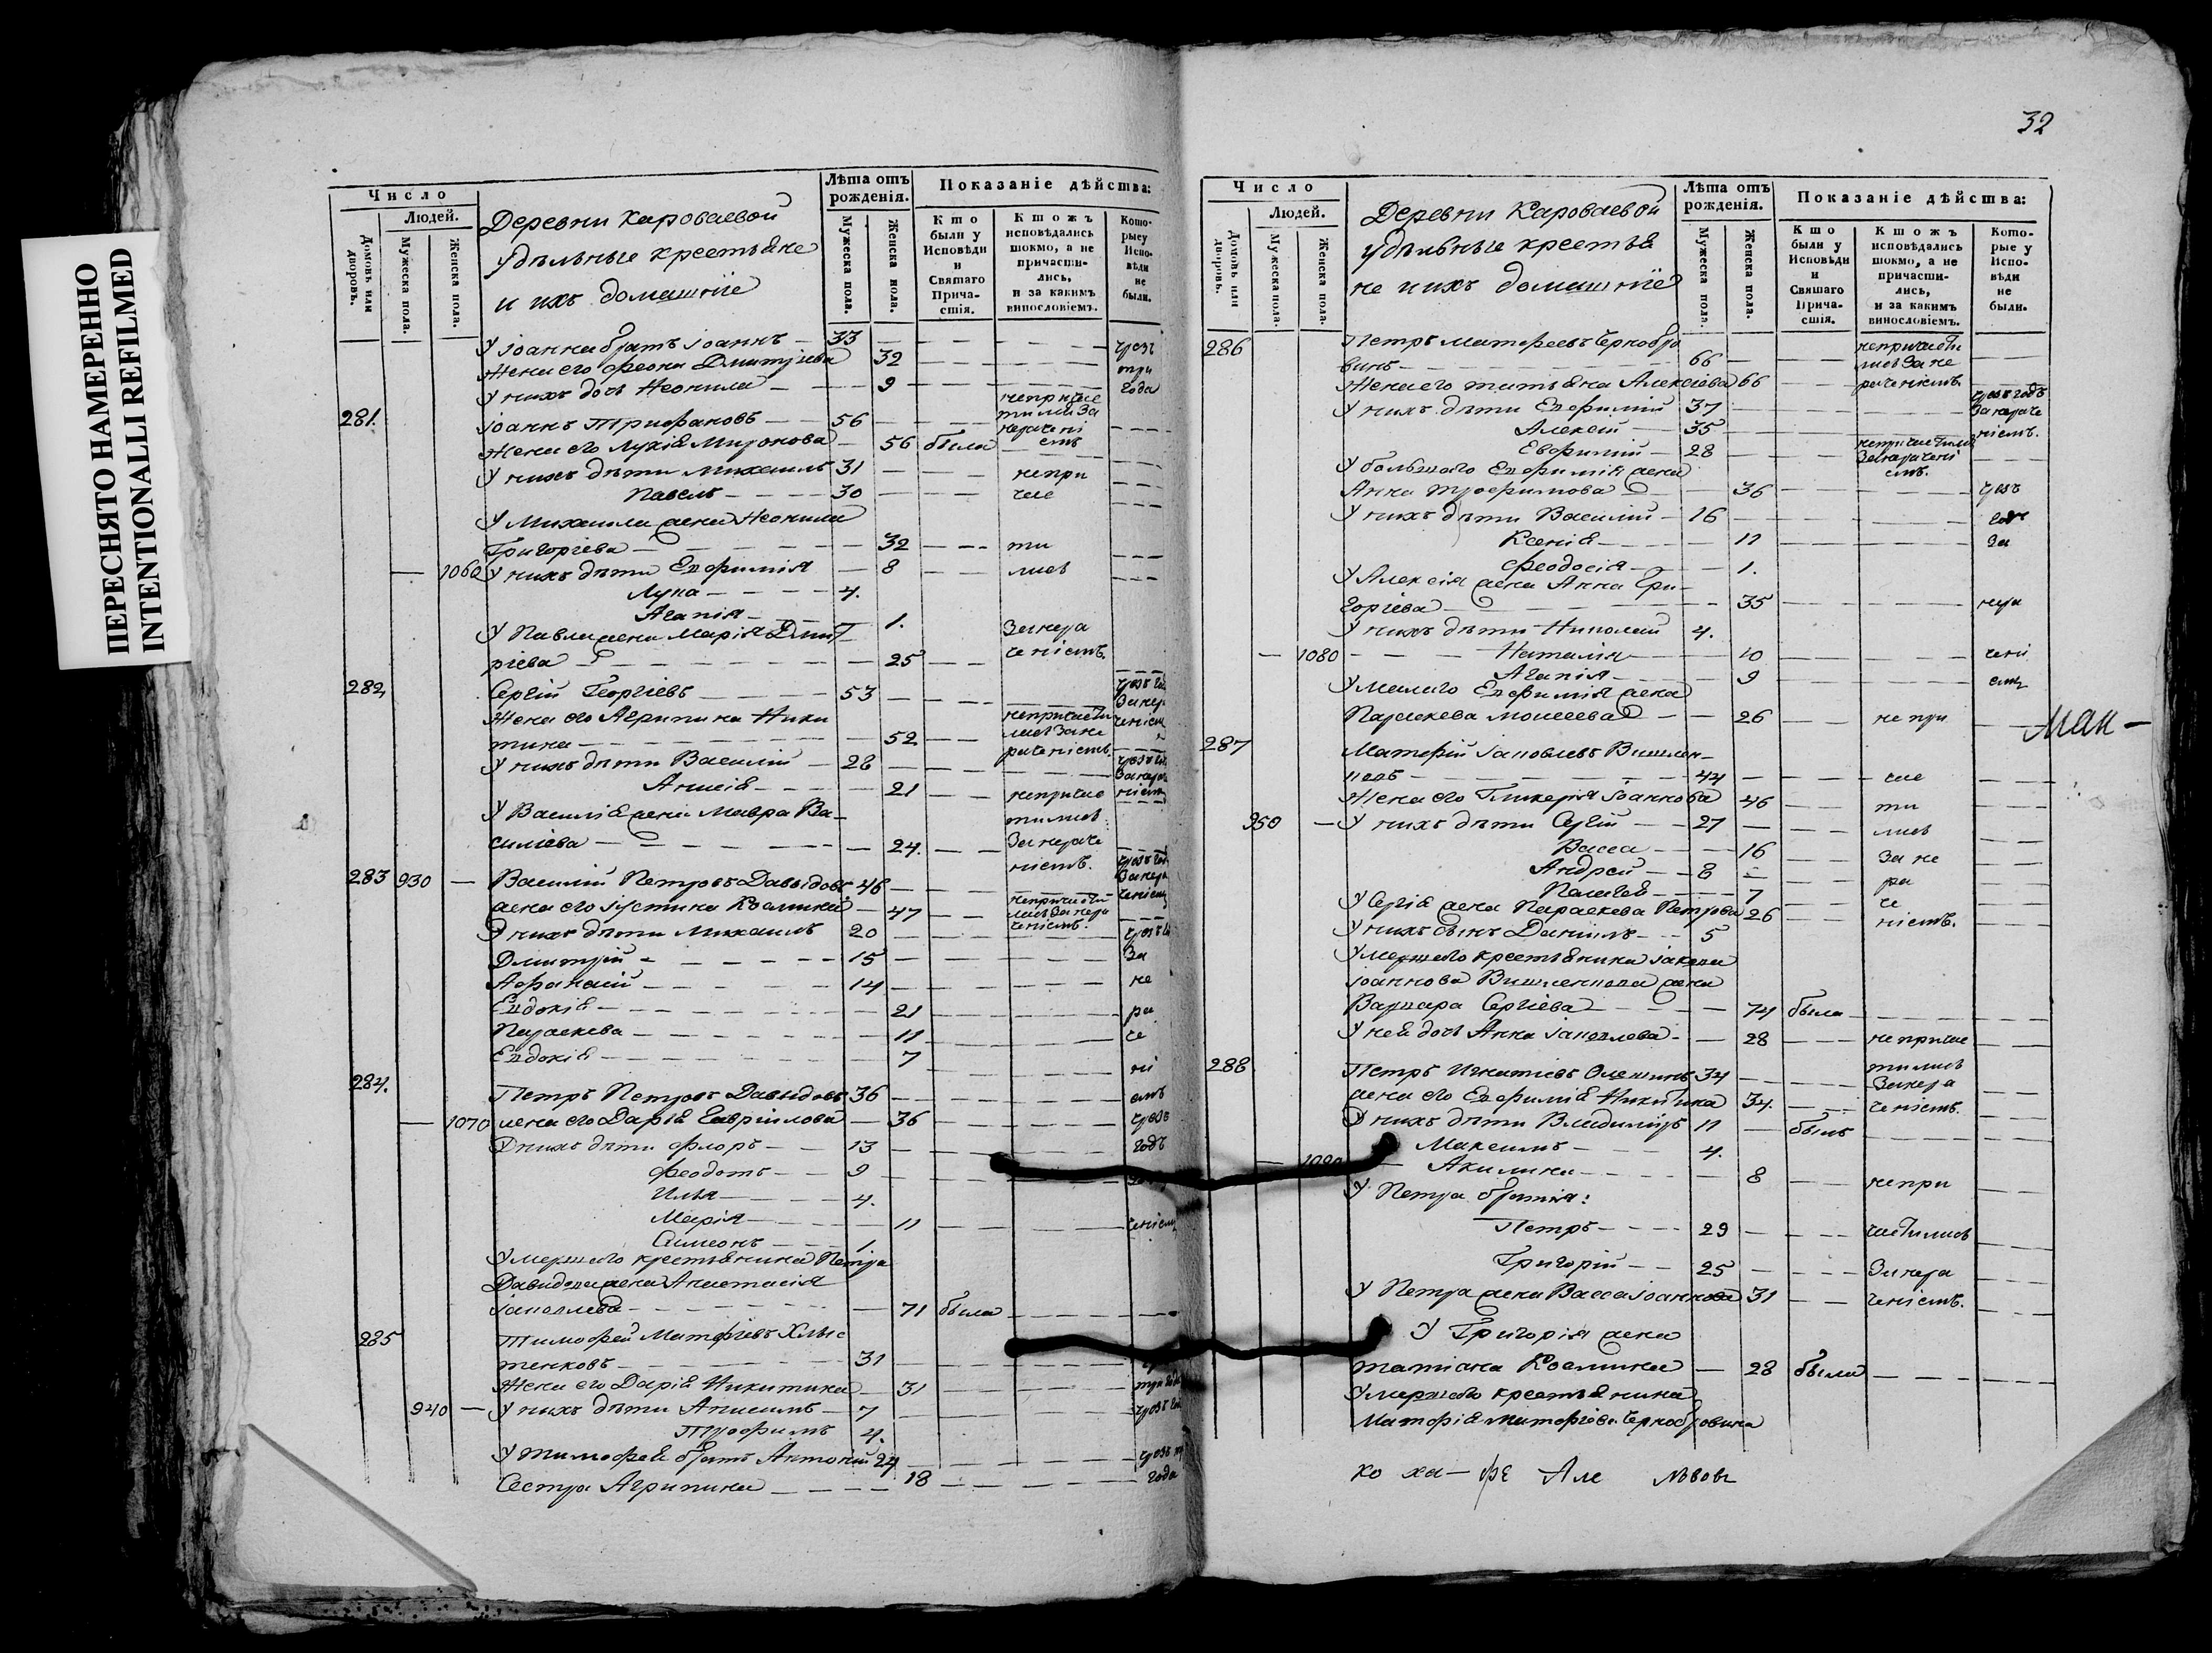 ПЕРЕСНЯТО НАМЕРЕННО
INTENTIONALLI REFILMED
Число
Людей.
Домовъ или дворовъ.
Мужеска пола.
Женска пола.
Деревни Кароваевой
удѣльные крестьяне
и ихъ домашніе
Лѣта отъ рожденія.
Мужеска пола.
Женска пола.
Показаніе дѣйства:
Кто были у Исповѣди и Святаго Причастія.
Ктожъ исповѣдались токмо, а не причастились, и за какимъ винословіемъ.
Которыеу Исповѣди не были.
У Іоанна братъ Іоаннъ 33 чрезъ
Жена его Феона Дмитріева 32 три
У нихъ дочь Неонила 9 года
281. Іоаннъ Трифоновъ 56
Жена его Лукія Миронова 56 была
У нихъ дѣти Михаилъ 31 непри
Павелъ 30 час
У Михаила жена Неонила
Григоріева 32 ти
1060 У нихъ дѣти Евфимія 8 лись
Лука 4.
Агапія 1.
У Павла жена Марія Дмит
ріева 25
282 Сергій Георгіевъ 53
Жена его Агрипина Ники
тина 52
У нихъ дѣти Василій 28
Анисія 21
У Василія жена Мавра Ва-
силіева 24.
283 930 Василій Петровъ Давыдовъ 46
жена его Іустина Космина 47
У нихъ дѣти Михаилъ 20
Дмитрій 15 за
Афанасій 14 не
Евдокія 21 ра
Параскева 11 че
Евдокія 7 ні
284. Петръ Петровъ Давыдовъ 36 емъ
1070 жена его Дарія Гавріилова 36 чрезъ
У нихъ дѣти Флоръ 13 годъ
Феодотъ 9
Илья 4.
Марія 11
Симеонъ 1
Умершаго крестьянина Петра
Давыдова жена Анастасія
Іаковлева 71 была
285 Тимофей Матфіевъ Хлыс
тенковъ 31
Жена его Дарія Никитина 31
940 У нихъ дѣти Анисимъ 7
Трофимъ 4.
У Тимофея братъ Антоній 24
Сестра Агрипина 18 года
32
Число
Людей.
Домовъ или дворовъ.
Мужеска пола.
Женска пола.
Деревни Кароваевой
удѣльные крестья
не и ихъ домашніе
Лѣта отъ рожденія.
Мужеска пола.
Женска пола.
Показаніе дѣйства:
Кто были у Исповѣди и Святаго Причастія.
Ктожъ исповѣдались токмо, а не причастились, и за какимъ винословіемъ.
Которые у Исповѣди не были.
286 Петръ Матфеевъ Чернобро
винъ 66
Жена его Татьяна Алексіева 66
У нихъ дѣти Евфимій 37
Алексій 35
Евфимій 28
У большаго Евфимія жена
Анна Трофимова 36 чрезъ
У нихъ дѣти Василій 16 годъ
Ксенія 11 за
Феодосія 1.
У Алексія жена Анна Гри-
горіева 35 нера
У нихъ дѣти Николай 4.
1080 Наталія 10 чені
Агапія 9 емъ
У малаго Евфимія жена
Параскева Моисеева 26 не при
287 Матфій Іаковлевъ Вишлен-
ковъ 44 час
Жена его Гликерія Іоаннова 46 ти
950 У нихъ дѣти Сергій 27 лись
Васса 16 за не
Андрей 8 ра
Палагея 7 че
У Сергія жена Параскева Петрова 26 ніемъ.
У нихъ сынъ Даніилъ 5
Умершаго крестьянина Іакова
Іоаннова Вишленкова жена
Варвара Сергіева 74 была
У нея дочь Анна Іаковлева 28 не причас
288 Петръ Игнатіевъ Олешинъ 34 тились за нера
жена его Евфимія Никитина 34. ченіемъ.
У нихъ дѣти Владиміръ 11 былъ
Максимъ 4.
Акилина 8 непри
У Петра братья:
Петръ 29 частились
Григорій 25 за нера
У Петра жена Васса Іоаннова 31 ченіемъ.
У Григорія жена
Татіана Космина 28 была
Умершаго крестьянина
Матфія Матфіева Чернобровина